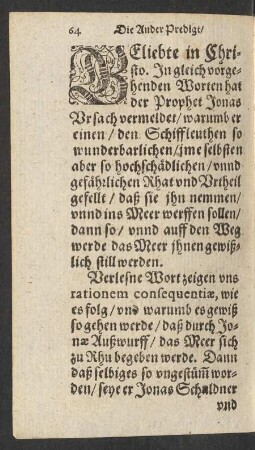 64 Die Ander Predigt/
GEliebte in Chri-
sto. In gleich vorge-
henden Worten hat
der Prophet Jonas
Vrsach vermeldet/ warumb er
einen/ den Schiffleuthen so
wunderbarlichen/ jme selbsten
aber so hochschädlichen/ vnnd
gefährlichen Rhat vnd Vrtheil
gefellt/ daß sie jhn nemmen/
vnnd ins Meer werffen sollen/
dann so/ vnnd auff den Weg
werde das Meer jhnen gewiß-
lich still werden.
Verlesne Wort zeigen vns
rationem consequentiæ, wie
es folg/ vnd warumb es gewiß
so gehen werde/ daß durch Jo-
næ Außwurff/ das Meer sich
zu Rhu begeben werde. Dann
daß selbiges so vngestüm̄ wor-
den/ seye er Jonas Schuldner
vnd